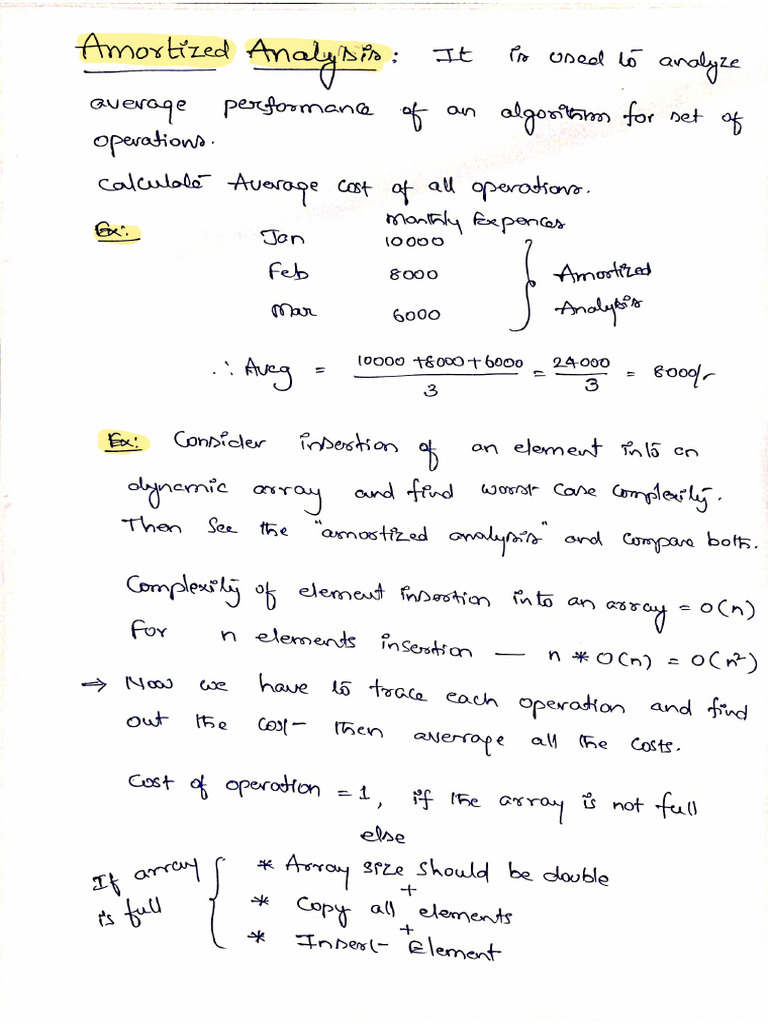 Amortized Analysis: It is used to analyze
average performance of an algorithm for set of
operations.
Calculate Average cost of all operations.
Ex: Monthly Expences
Jan 10000
Feb 8000
Mar 6000
Amortized
Analysis
∴ Aveg = 10000 + 8000 + 6000 / 3 = 24000 / 3 = 8000/-
Ex: Consider insertion of an element into an
dynamic array and find worst case complexity.
Then see the "amortized analysis" and compare both.
Complexity of element insertion into an array = O(n)
For n elements insertion — n * O(n) = O(n²)
⇒ Now we have to trace each operation and find
out the cost then averrape all the costs.
Cost of operation = 1, if the array is not full
else
If array
is full
* Array size should be double
+
* Copy all elements
+
* Insert Element